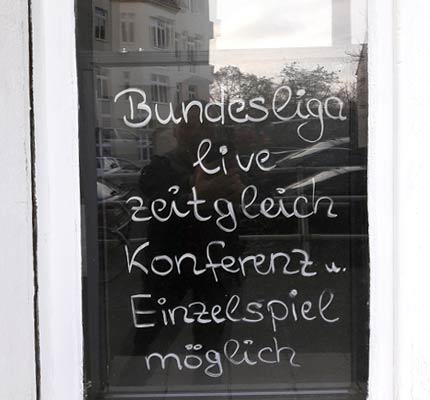 Bundesliga
live
zeitgleich
Konferenz u.
Einzelspiel
möglich